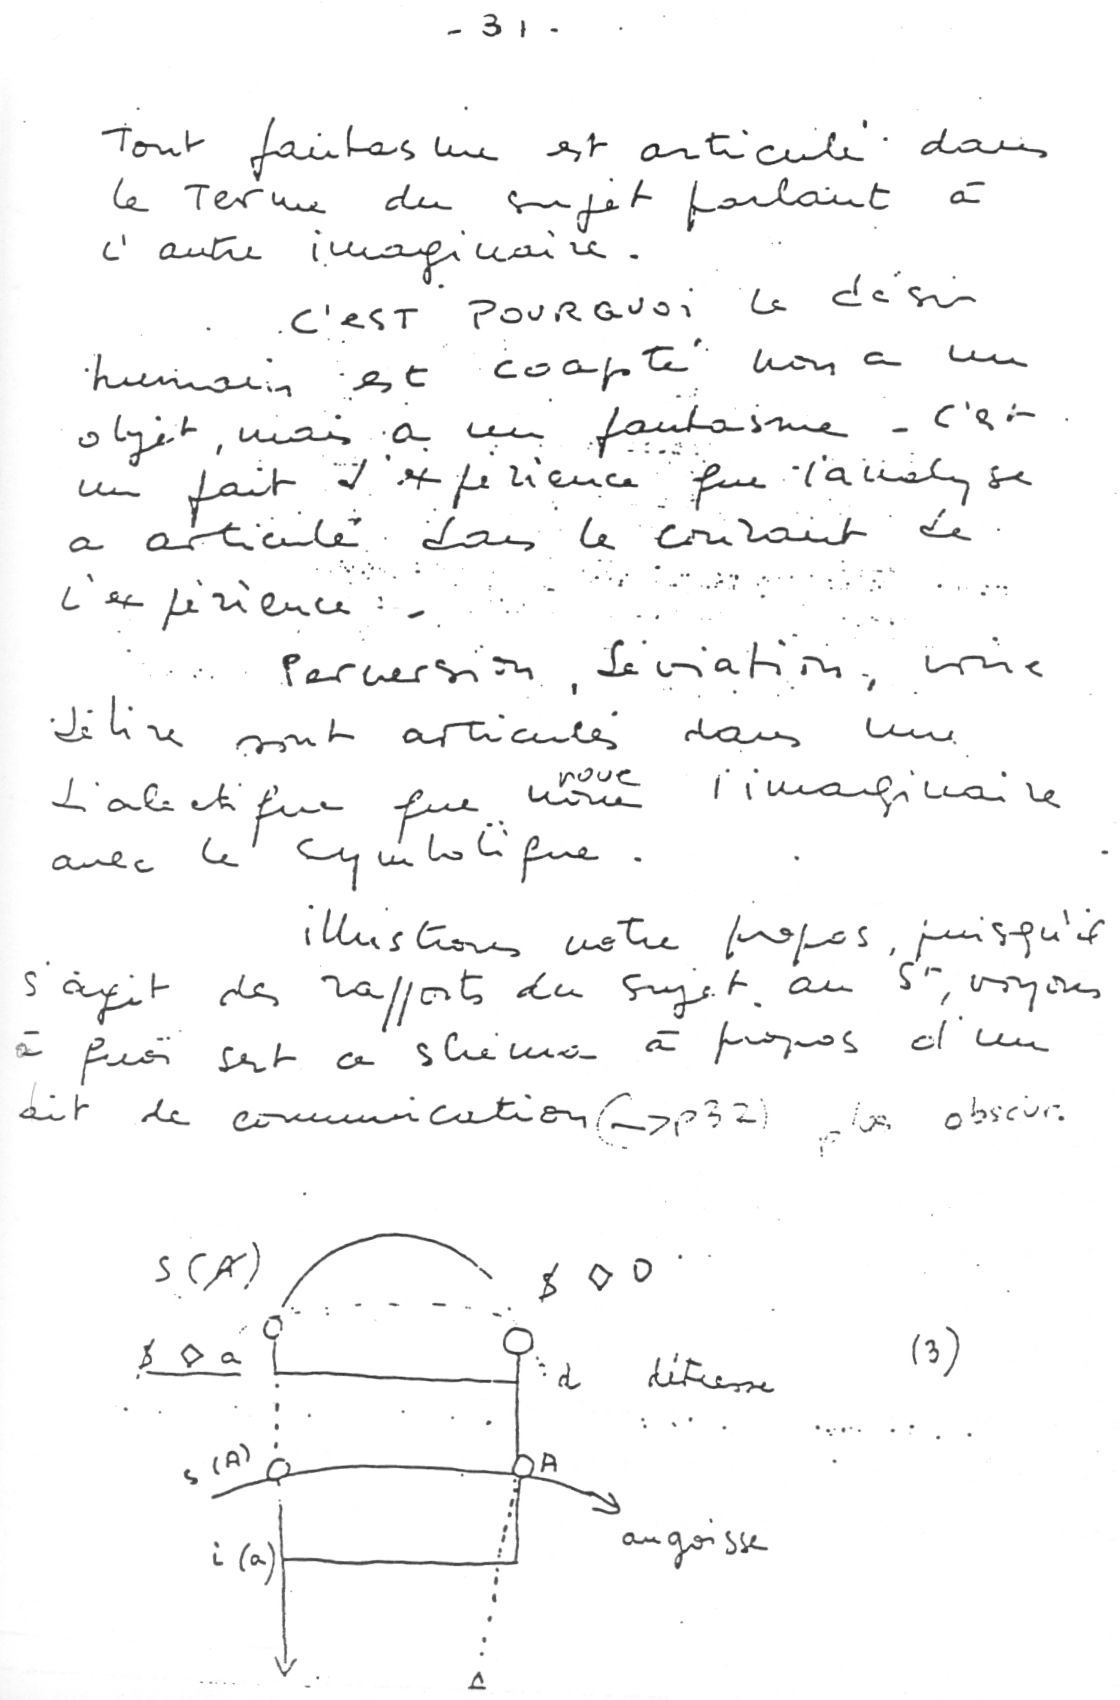 - 31 -
Tout fantasme est articulé dans
le Terme du sujet parlant à
l'autre imaginaire.
C'EST POURQUOI le désir
humain est coapté non a un
objet, mais a un fantasme - C'est
un fait d'expérience que l'analyse
a articulé dans le courant de
l'expérience : -
Perversion, déviation, voire
délire sont articulés dans une
dialectique que noue
noue l'imaginaire
avec le symbolique.
illustrons notre propos, puisqu'il
s'agit des rapports du sujet au Sr, voyons
à quoi sert ce schéma à propos d'un
dit de communication (→p32) plus obscur.
S(Ⱥ)
$ ◇ D
$ ◇ a
d détresse
(3)
s(A)
A
angoisse
i(a)
Δ